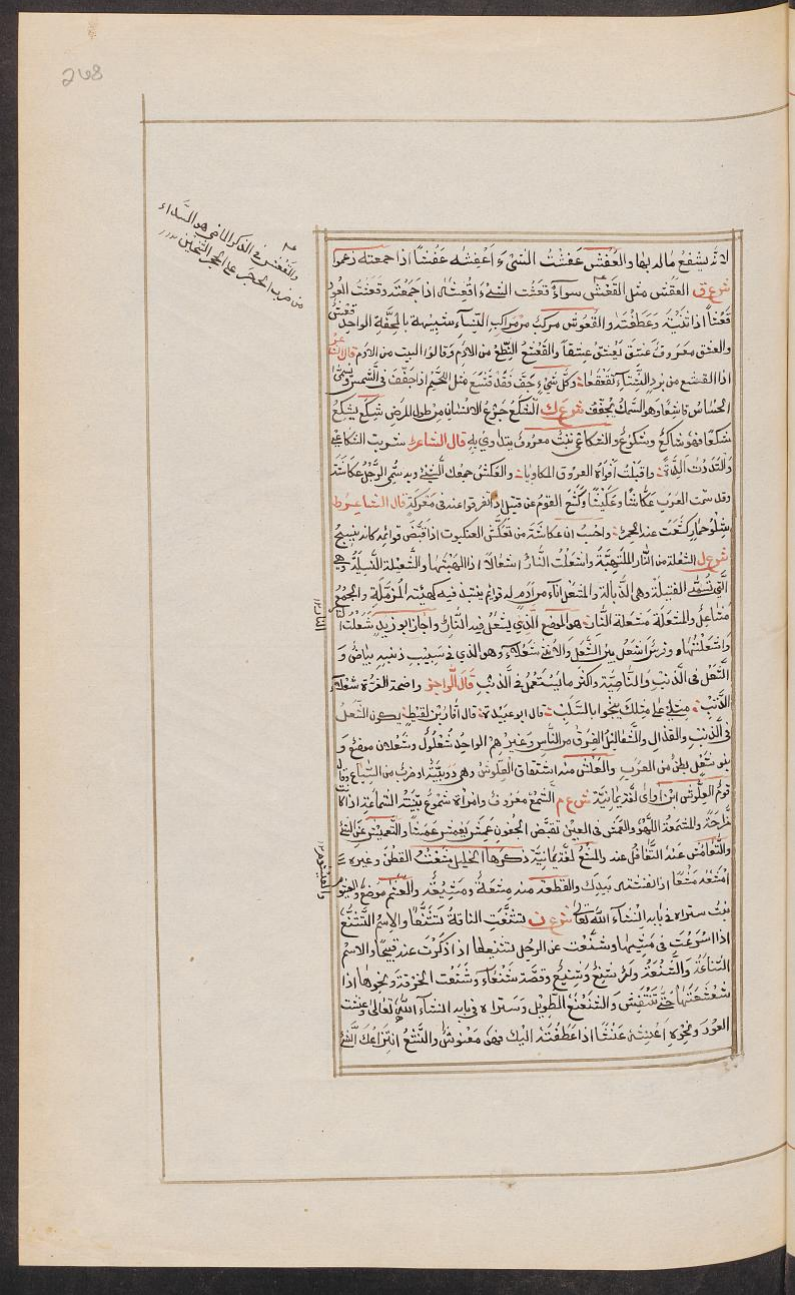 268
والقفش في الذكر الماضي هو السَّداء
من ضرب الحجر على الحجر الثخين
لانه يشفع ماله بها والعَفْش عَفَشْتُ الشيءَ اَعْفِشُه عَفْشًا اذا جمعته زعموا
ش ع ق العَقْش مثل القَعْش سواءٌ قَعَشْت الشيءَ واقعشته اذا جَمَعْتَه وقَعَشْتُ العود
قَعْشًا اذا ثَنَيْتَه وَعَطَفْتَه والقُعُوش مركب من مراكب النِّسَاءِ شبيهة بالمِحَفَّة الواحد قَعْش
والعشق معروف عَشِق يَعْشَق عِشقًا والقَشْع النِّطع من الادَم وقالوا البيت من الادَم قال الشاعر
اذا القشع من بردِ الشِّتَاءِ تَقَعْقَعا وكلّ شيءٍ جَفّ فَقَدْ قَشَعَ مثل اللحْمِ اذا جفّف فى الشَّمسِ ويسمّى
الحُسَاسُ قاشِعًا وهو السَّمك يُجفّف ش ع ك الشَّكَعُ جَزَعُ الانسان من طول المرض شَكِع يشكَع
شَكَعًا فهو شاكعٌ وشَكِعٌ والشكاعى نبت معروف يتداوى به قال الشاعر شربت الشكاعى
والْتَدَدْتُ اَلِدَّةً واقبلْتُ افواهَ العروق المكاويا والعكش جمعك الشيءَ وبه سمّى الرَّجُل عكّاشة
وقد سمّت العرب عكّاشًا وعُكَيْشًا وكَشَعَ القومُ عن قتيل اذا تفرقوا عنه في معركةٍ قال الشاعر
شِلْوُ حِمَارٍ كَشَعَت عنه الحُمُرْ واحسِب ان عكاشة من تعكّش العنكبوت اذا قبّض قوائمه كانه ينسج
ش ع ل الشعلة من النَّار الملتهبَةُ واشعلْتُ النَّارَ اِشعالًا اذا الهَبْتَها والشَّعيلة الفَتيلةُ وهي
التى تسمّى الفتيلة وهى الذُّبالة والمِشْعَل اناءٌ من ادم له قوائم ينتبذ فيه كهيئة المُزَمَّلَةِ والجمع
مَشاعِلُ والمشعلة مَشْعَلة النّار هو الموضع الَّذي يُشْعَل فيه النَّار واجاز ابو زيد شَعَلْتُ
النار
واشعلْتُها وفرسٌ اشعَل بيّن الشَّعَل والانثى شعلاء وهو الذى فى سَبِيب ذنبه بياضٌ و
الشَّعَل فى الذَّنَبِ والنّاصيَةِ واكثر ما يُسْتَعمَل فى الذَّنَب قال الراجز واضحة الغُرَّة شعلاء
الذَّنَب قال ابو عبيدة قال اُنَاف بن لقيط يكون الشَّعَلُ
فى الذَّنَب والقَذَال والشعاليل الفِرَق من النَّاس وغيرهم الواحد شُعلُول وشَعْلان موضع و
بنو شُعَل بطنٌ من العرب والعَلْش منه اشتقاق العِلَّوْش وهى دويبَّة او ضرب من السِّباع وقال
قوم العلّوش ابن آوى لغة يمانيّة ش ع م الشَّمْعُ معروفٌ وامراة شَمُوعٌ بيّنة الشماعة اذا كانت
مَزّاحةً والمَشمَعة اللَّهْو والعَمَش فى العين تقبّض الجُفون عَمِشَ يَعمَش عَمَشًا والتَّعميش عن الشيء
والتَّعامُش عنه التَّغافُل عنه والمَشْع لغة يمانيّة ذكرها الخليل مَشَعْتُ القطن وغيره
اَمْشَعُه مَشْعًا اذا نفشته بيدك والقطعة منه مِشْعَةٌ ومَشِيْعَة والعشم موضع والعيشوم
والعيشوم
نبتٌ ستراه فى بابه انشاء اللّه تعالى ش ع ن تشنَّعَت الناقة تَشَنُّعًا والاسم التَّشَنُّع
اذا اسرعَت في مشيها وشنَّعت عن الرجل تشنيعًا اذا ذكرتَ عنه قبيحًا والاسم
الشناعَة والشُّنعة وامرٌ شنِعٌ وشنِيعٌ وقصّة شَنْعَاءُ وشَنَعت الخرقة ونحوها اذا
شعَّثتها حتّى تنتفش والشَّعنَع الطّويل وستراه فى بابه انشاء اللّه تعالى وعنشتُ
العُوْد ونحوه اَعْنِشه عَنْشًا اذا عَطفتَه اليك فهو معنوش والنَّشْع انتزاعك الشيءَ